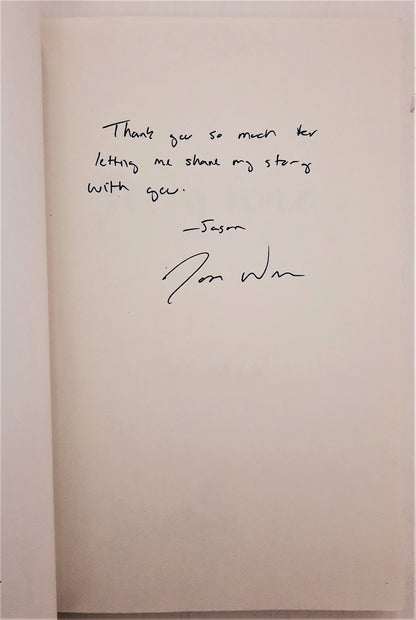 Thank you so much for
letting me share my story
with you.
—Jason